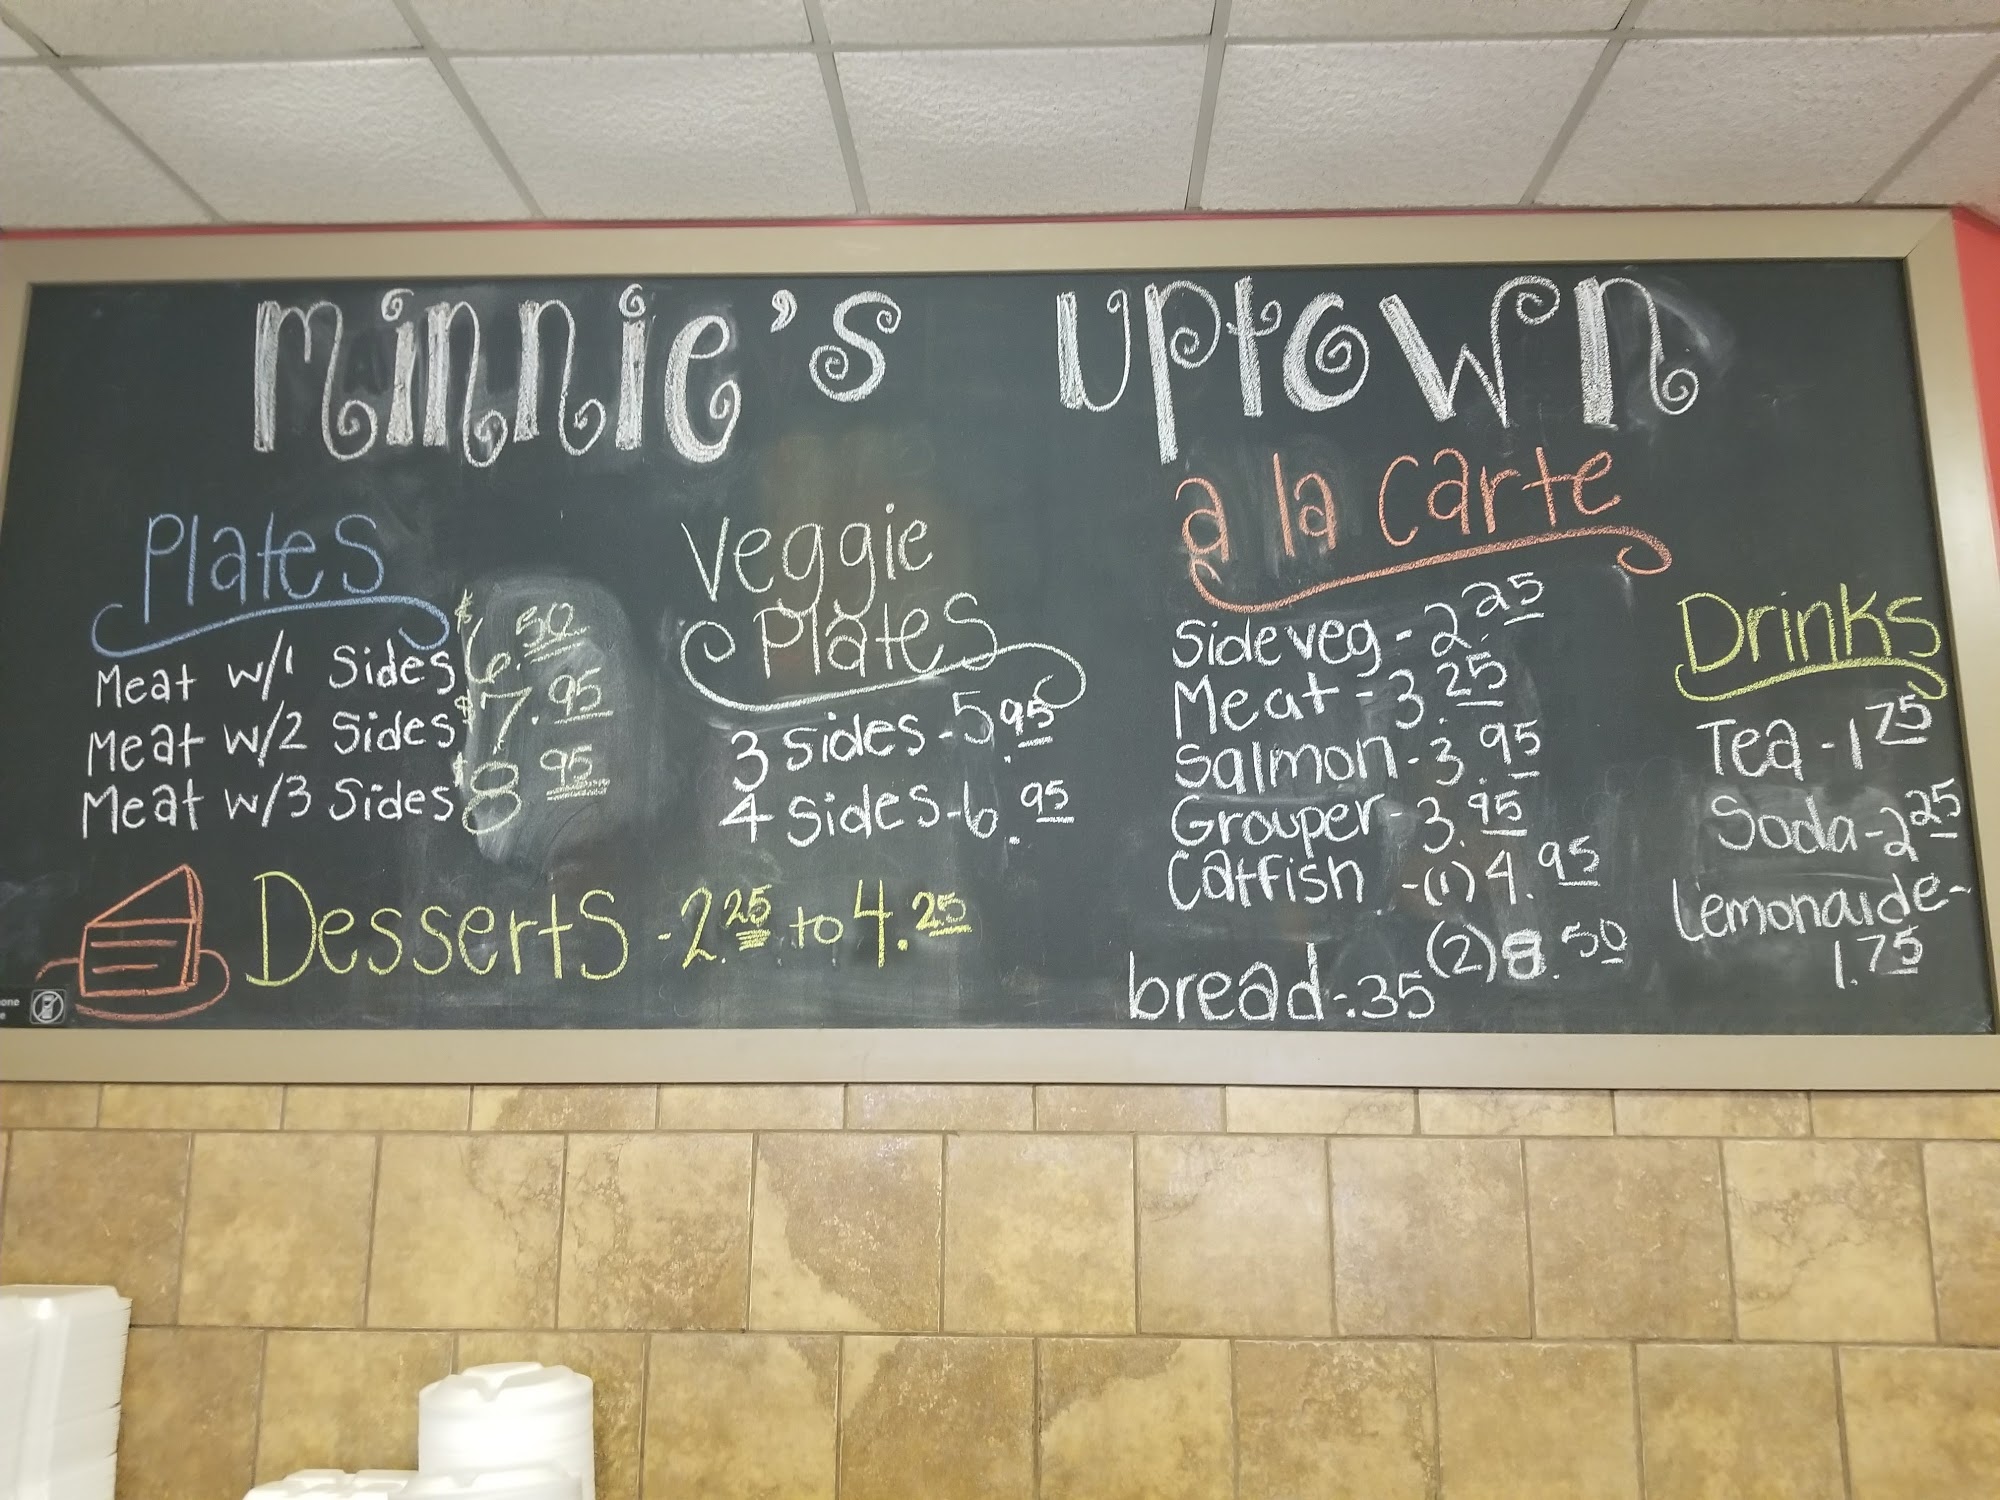 minnie's uptown
Plates
Meat w/1 Sides $6.50
Meat w/2 Sides $7.95
Meat w/3 Sides $8.95
Veggie
Plates
3 sides - 5.95
4 sides - 6.95
Desserts - 2.25 to 4.25
a la carte
Sideveg - 2.25
Meat - 3.25
Salmon - 3.95
Grouper - 3.95
Catfish - (1) 4.95
(2) 8.50
bread - .35
Drinks
Tea - 1.75
Soda - 2.25
Lemonaide -
1.75